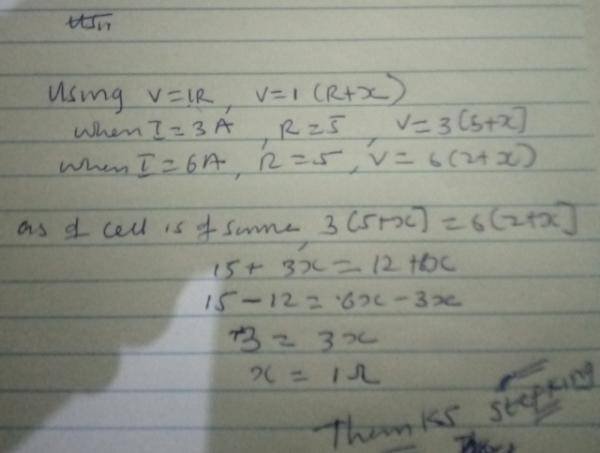 Using V=IR, V=1(R+x)
when I=3A, R=5, V=3[5+x]
when I=6A, R=5, V=6(2+x)
as d cell is d same, 3[5+x]=6[2+x]
15+3x=12+6x
15-12=6x-3x
3=3x
x=1Ω
Thanks